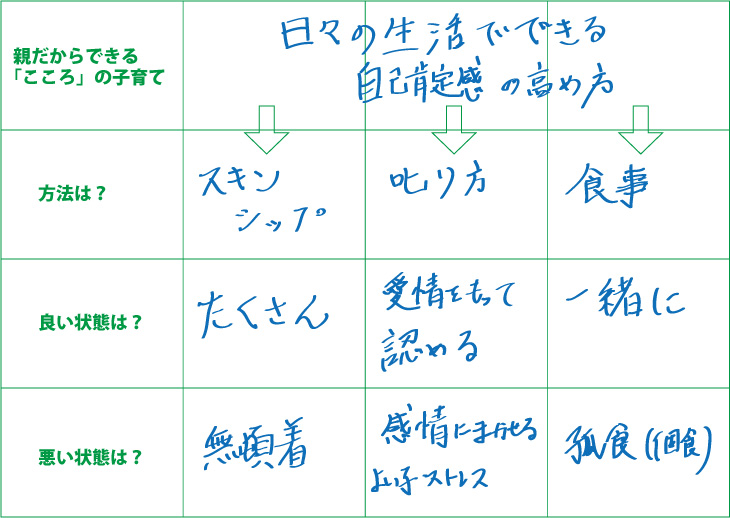 親だからできる
「こころ」の子育て
日々の生活でできる
自己肯定感の高め方
方法は？
スキン
シップ
叱り方
食事
良い状態は？
たくさん
愛情をもって
認める
一緒に
悪い状態は？
無頓着
感情にまかせる
よい子ストレス
孤食(個食)